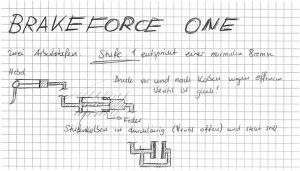 BRAKEFORCE ONE
zwei Arbeitstufen. Stufe 1 entspricht einer normalen Bremse
Hebel
Druck vor und nach Kolben wegen offenem
Ventil ist gleich!
Feder
Stufenkolben ist durchlässig (Ventil offen) und